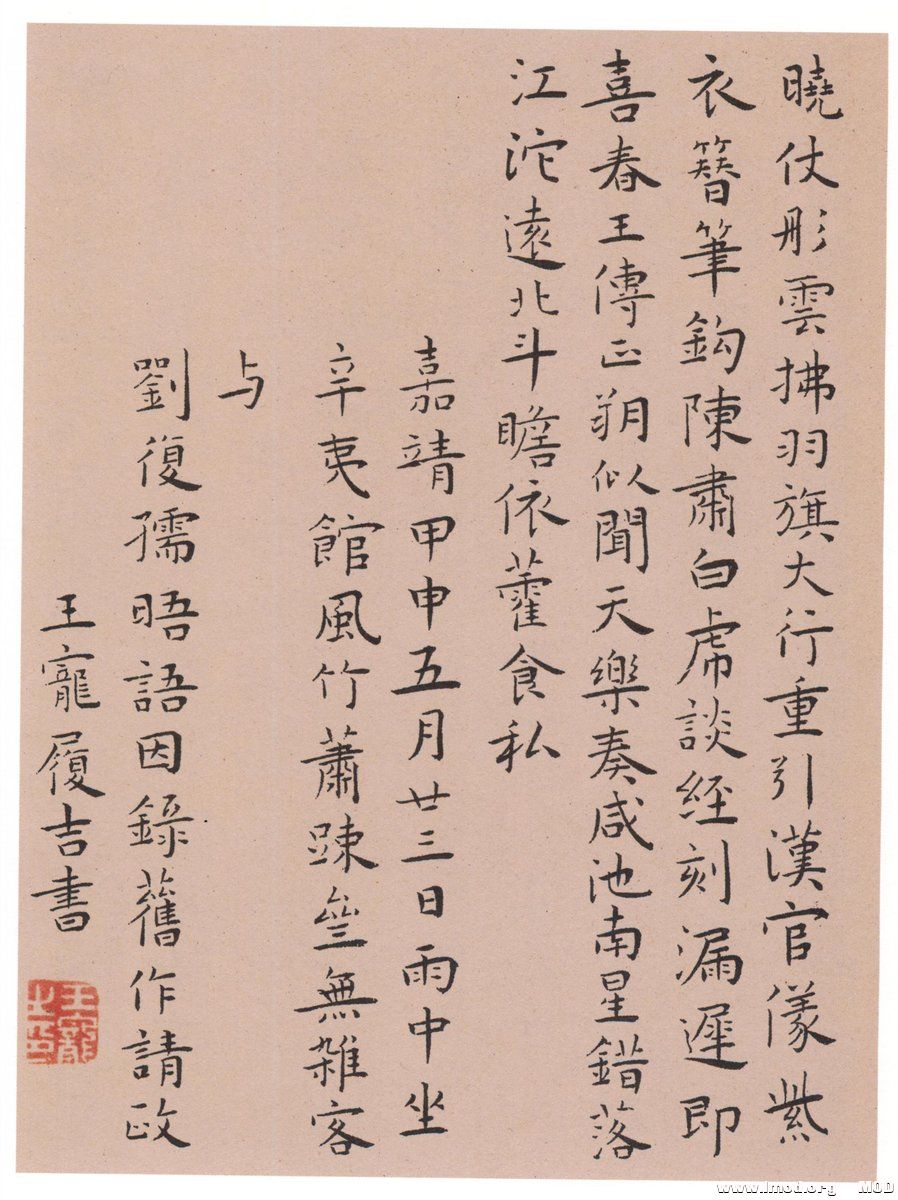 曉仗彤雲拂羽旗大行重引漢官儀紫
衣簪筆鈎陳肅白虎談經刻漏遲即
喜春王傳正朔似聞天樂奏咸池南星錯落
江沱遠北斗瞻依藿食私
嘉靖甲申五月廿三日雨中坐
辛夷館風竹蕭踈亝無雜客
与
劉復孺晤語因錄舊作請政
王寵履吉書
王寵之印
www.lmod.org MOD